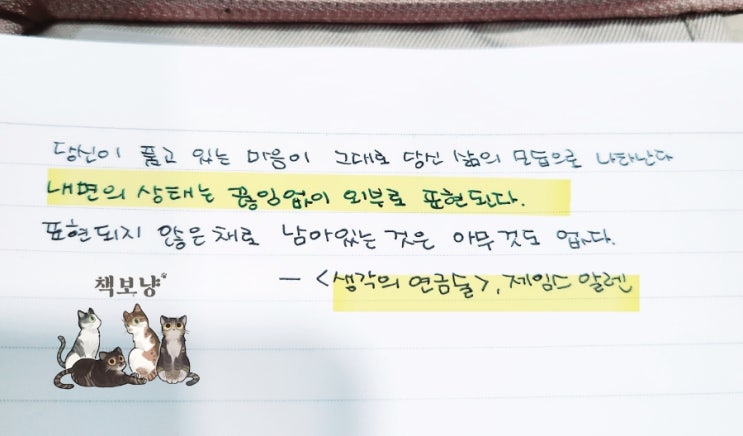 당신이 품고 있는 마음이 그대로 당신 삶의 모습으로 나타난다
내면의 상태는 끊임없이 외부로 표현된다.
표현되지 않은 채로 남아있는 것은 아무것도 없다.
- <생각의 연금술>, 제임스 알렌
책보냥